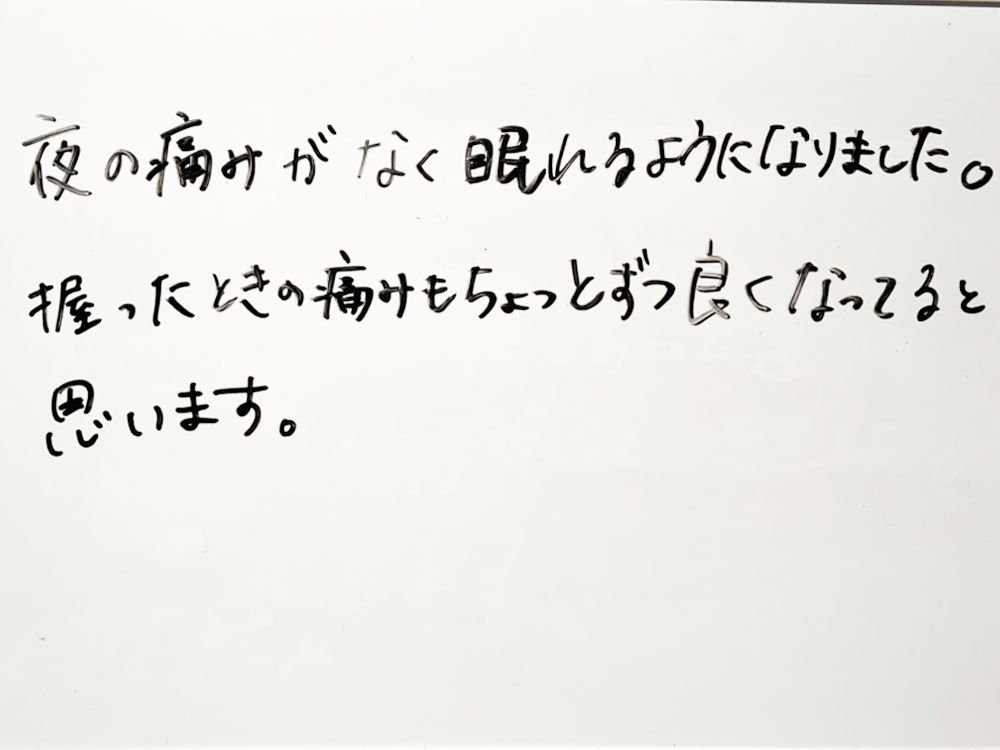 夜の痛みがなく眠れるようになりました。
握ったときの痛みもちょっとずつ良くなってると
思います。